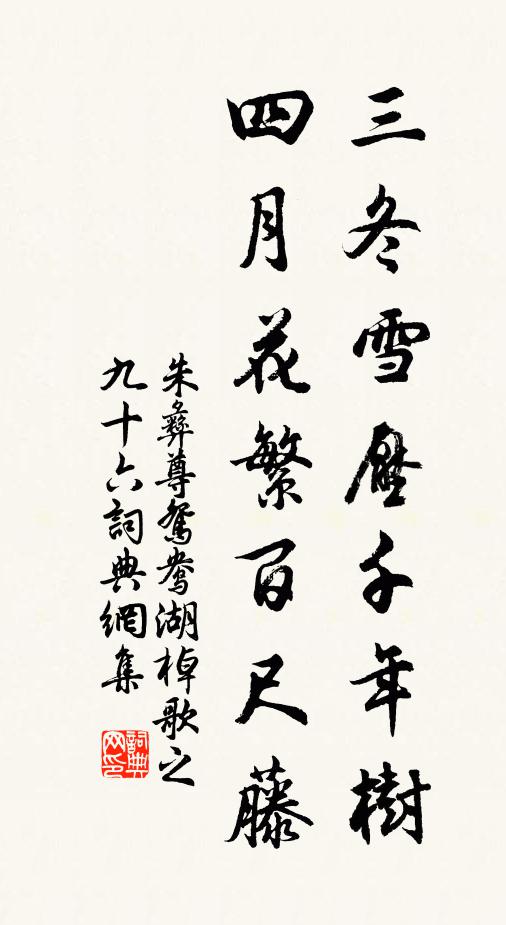 三冬雪壓千年樹
四月花繁百尺藤
朱彝尊鴛鴦湖棹歌之
九十六詞典網集
詞典
网印